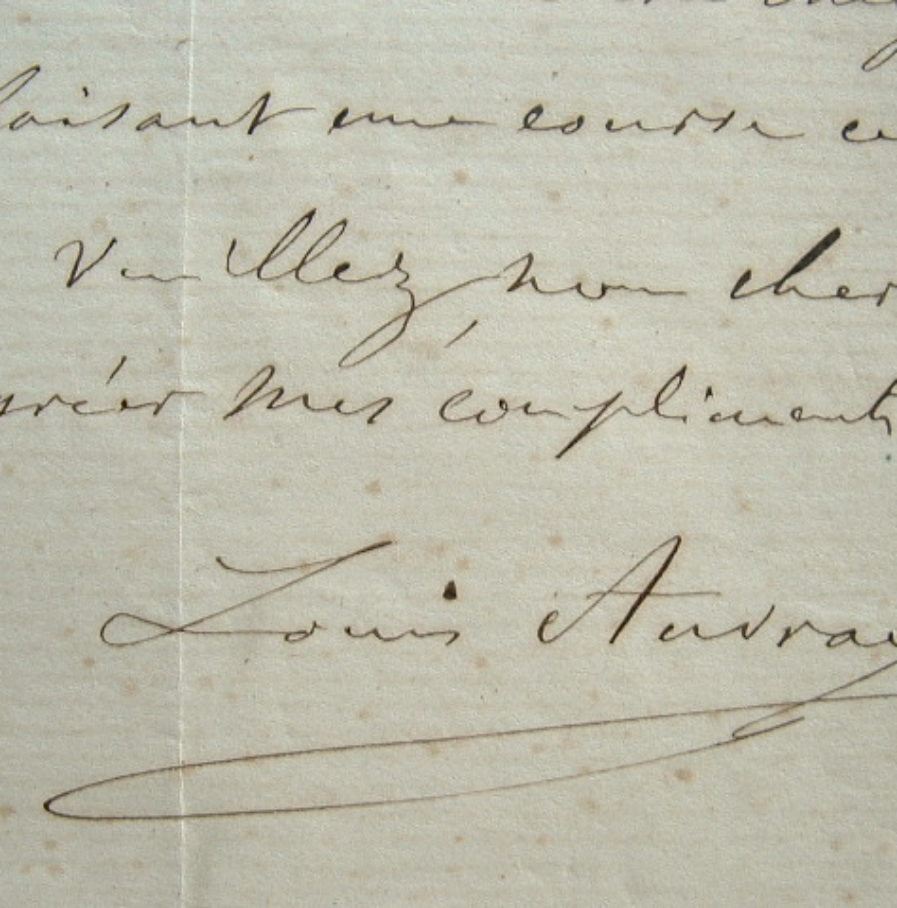 faisant une course
Veuillez, mon cher
gréer mes compliments
Louis Auvray